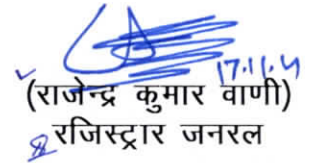 17.11.
(राजेन्द्र कुमार वाणी)
रजिस्ट्रार जनरल